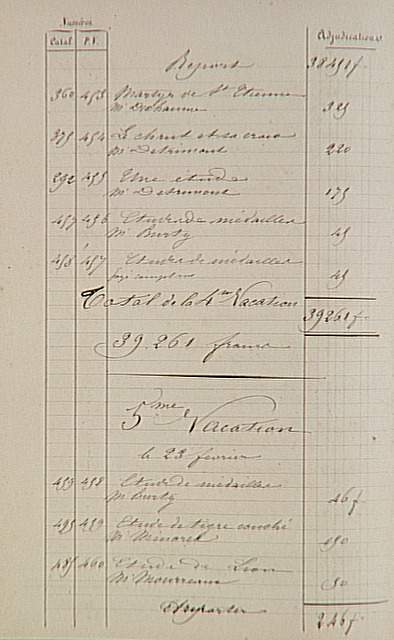 Numéros
Catal P.V. Adjudications
Report 38451 f
360 453 Martyr de St Etienne
Mr Dethomme 325
375 454 Le christ et sa croix
Mr Detrimont 220
392 455 Une étude
Mr Detrimont 175
457 456 Etudes de médailles
Mr Burty 45
458 457 Etudes de médailles
45
Total de la 4me Vacation 39261 f
39.261 francs
5me Vacation
le 23 février
459 458 Etude de médailles
Mr Burty 46 f
495 459 Etude de tigre couché
Mr Minoret 150
485 460 Etude de Lion
Mr 50
A reporter 246 f